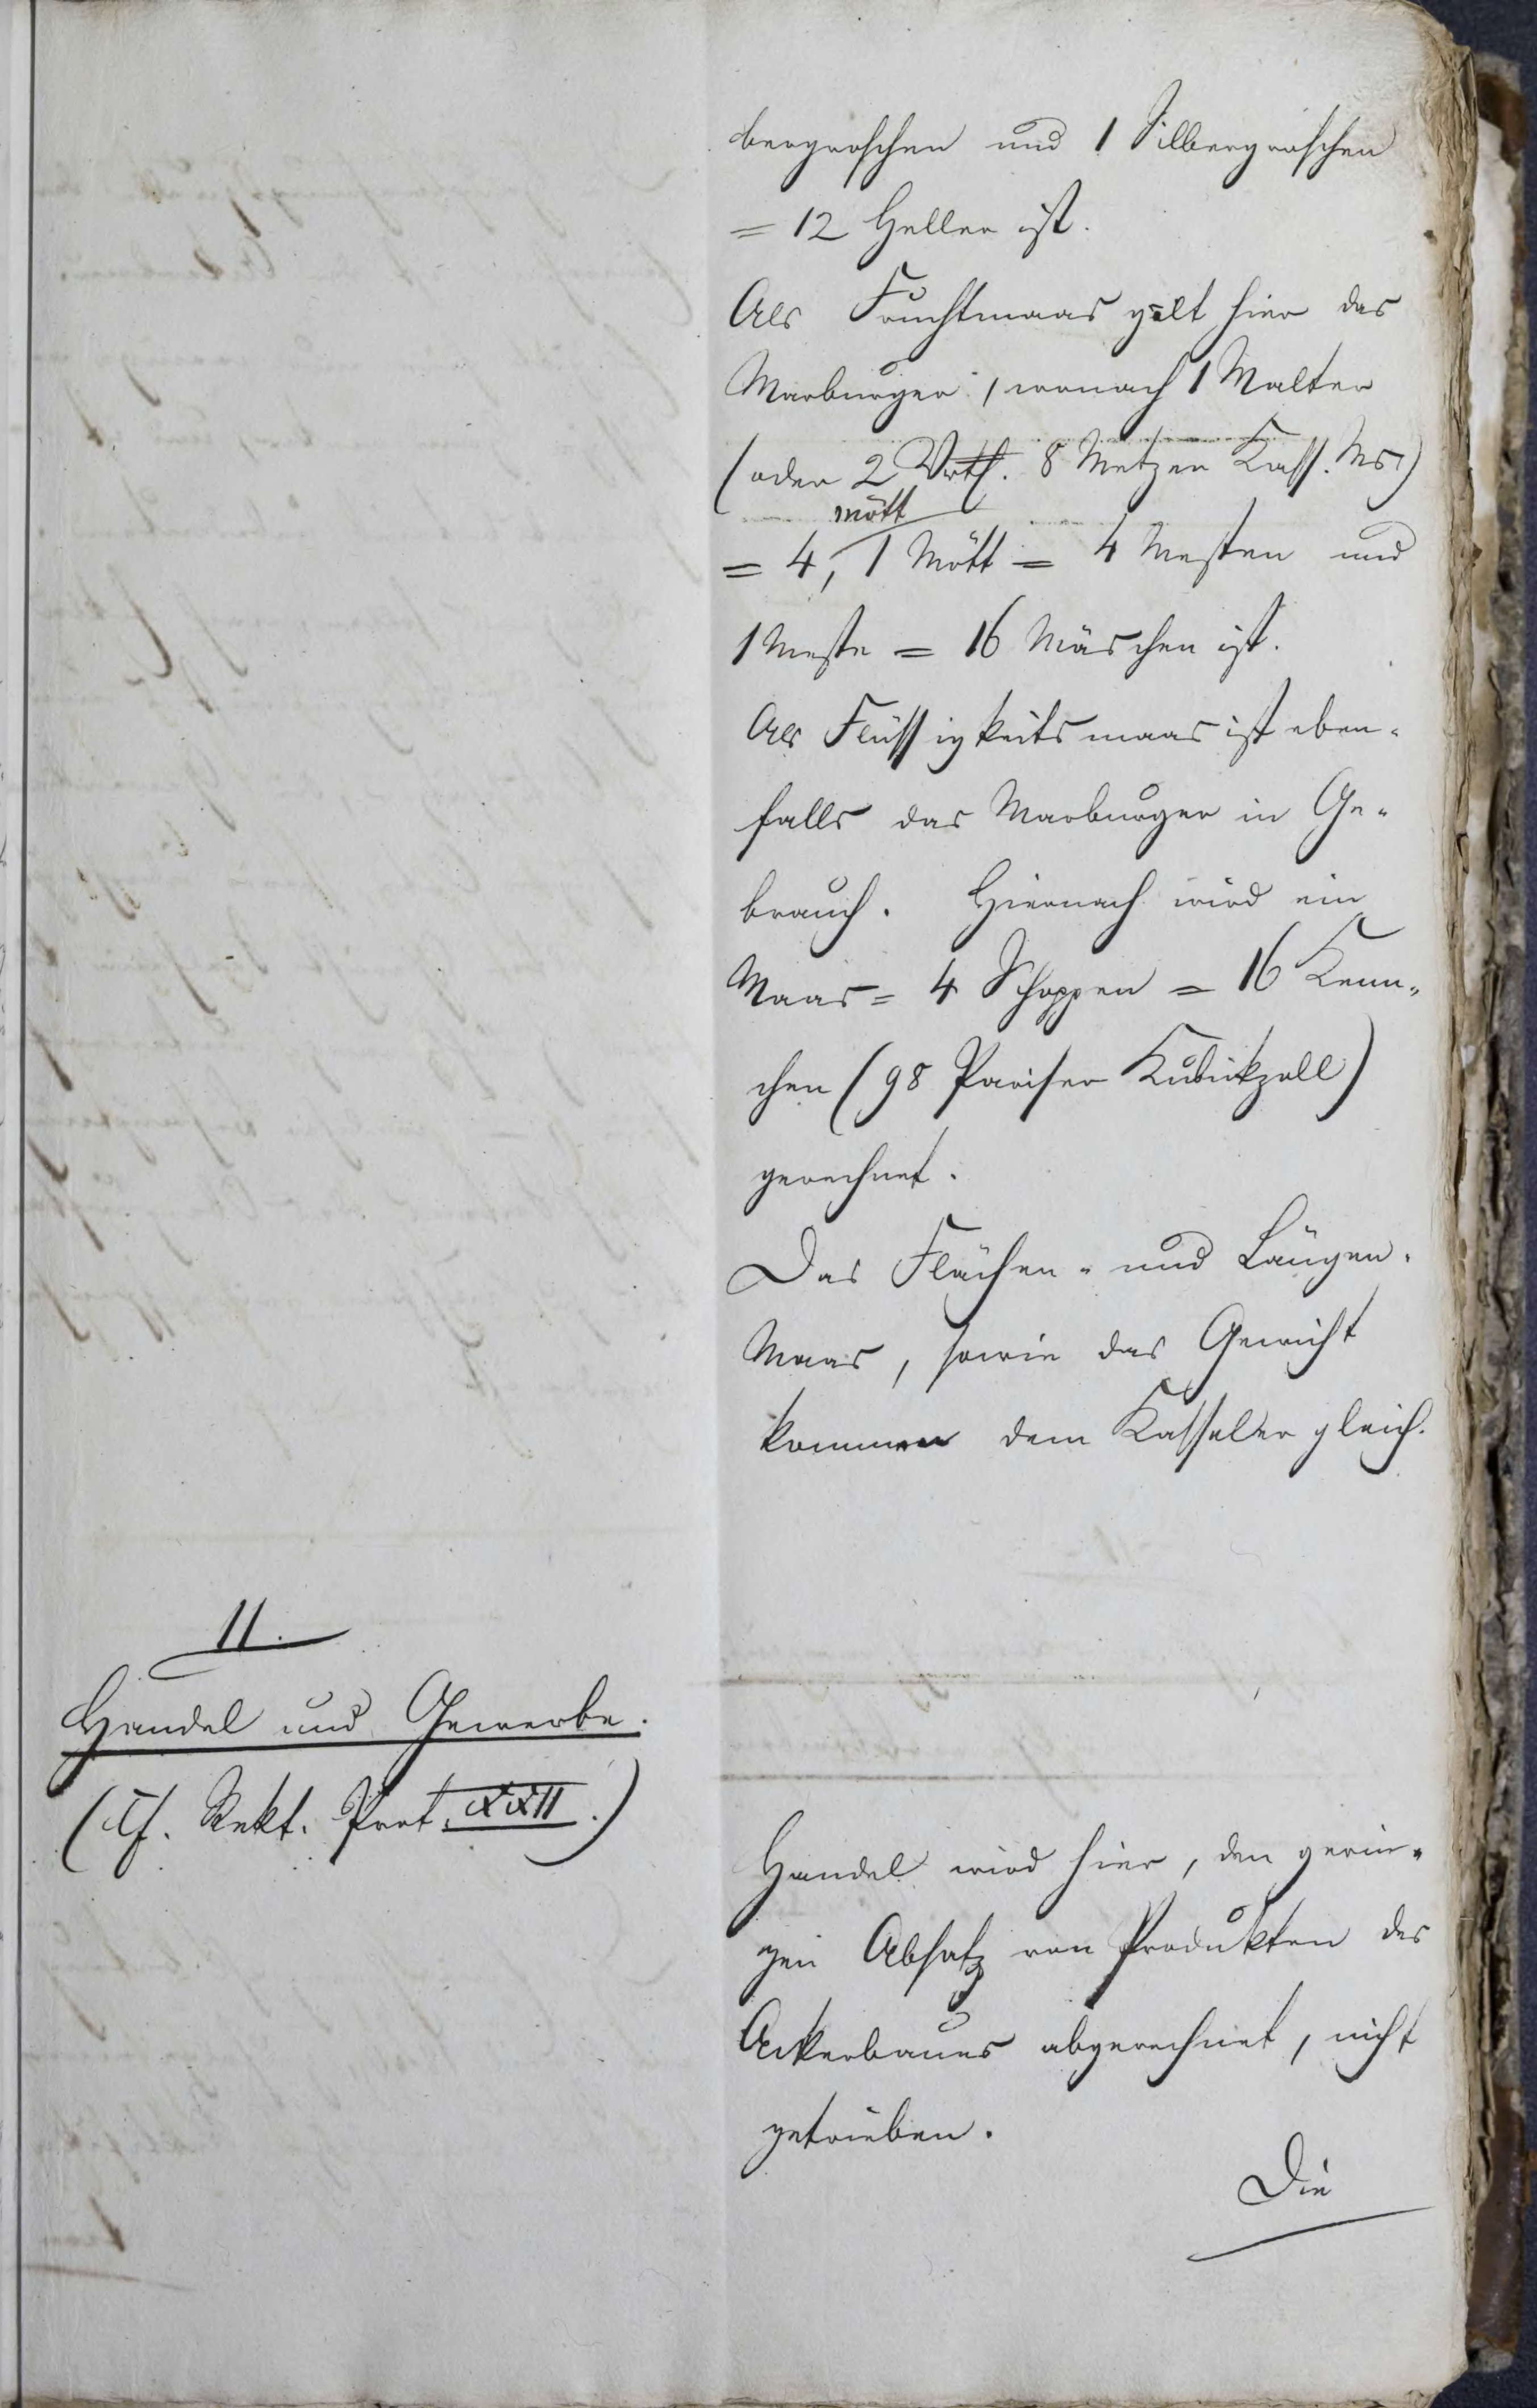 bergroschen und 1 Silbergroschen
= 12 Heller ist.
Als Fruchtmaas gilt hier das
Marburger, wonach 1 Malter
(oder 2 Vrtl. 8 Metzen Kass. Ms)
mött
= 4, 1 Mött = 4 Mesten und
1 Meste = 16 Mäschen ist.
Als Flüssigkeitsmaas ist eben-
falls das Marburger in Ge-
brauch. Hiernach wird ein
Maas = 4 Schoppen = 16 Kenn-
chen (98 Pariser Kubikzoll)
gerechnet.
Das Flächen- und Längen-
Maas, sowie das Gewicht
kommen dem Kasseler gleich.
11.
Handel und Gewerbe.
(Cf. Rekt. Prot. XXII.)
Handel wird hier, den gerin-
gen Absatz von Produkten des
Ackerbaues abgerechnet, nicht
getrieben.
Die